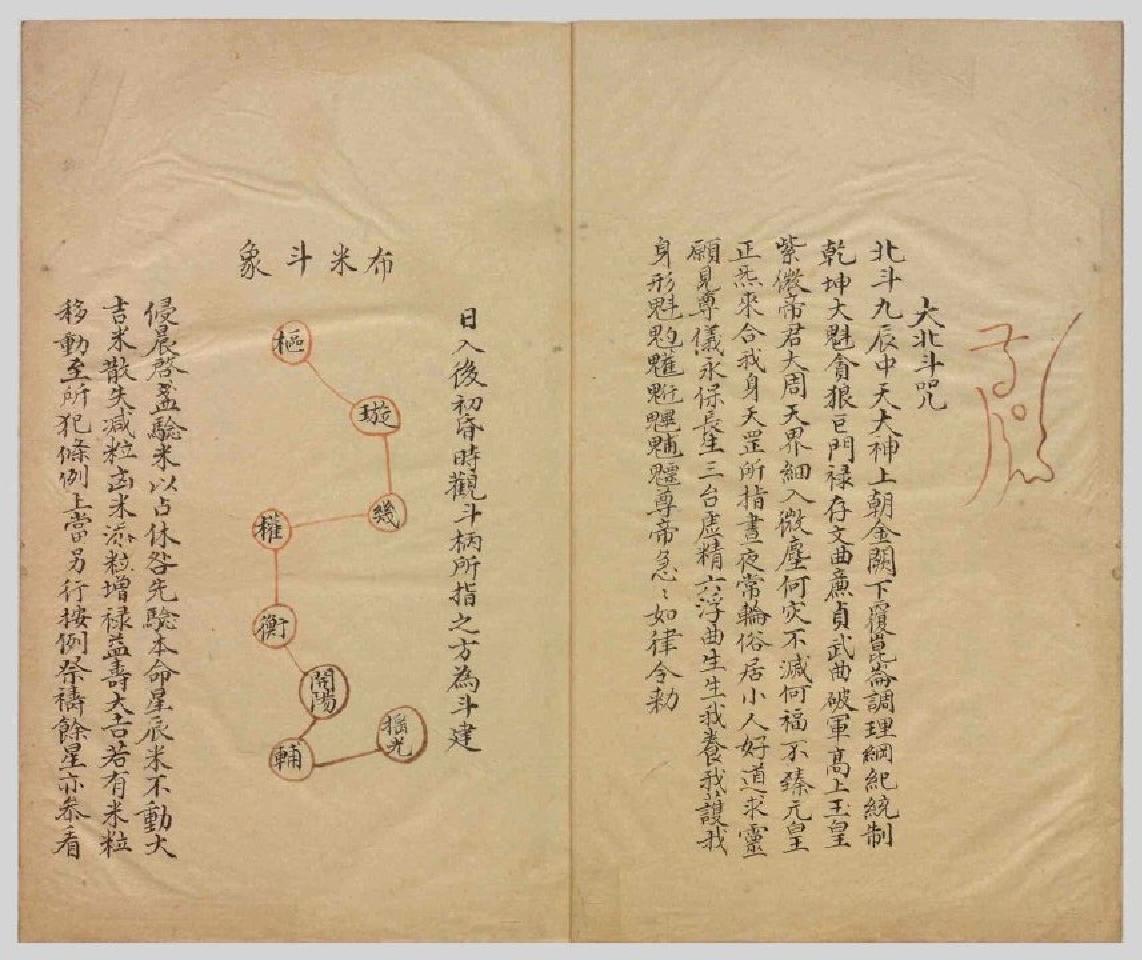 大北斗咒
北斗九辰中天大神上朝金闕下覆崑崙調理綱紀統制
乾坤大魁貪狼巨門禄存文曲廉貞武曲破軍高上玉皇
紫微帝君大周天界細入微塵何灾不滅何福不臻元皇
正炁來合我身天罡所指晝夜常輪俗居小人好道求靈
願見尊儀永保長生三台虛精六淳曲生生我養我護我
身形魁𩲃䰢魓䰡魒魒尊帝急〻如律令勅
日入後初昏時觀斗柄所指之方為斗建
布米斗象
樞
璇
幾
權
衡
開陽
輔
摇光
侵晨啓盖驗米以占休咎先驗本命星辰米不動大
吉米散失减粒凶米添粒增禄益壽大吉若有米粒
移動至所犯條例上當另行按例祭禱餘星亦叅看